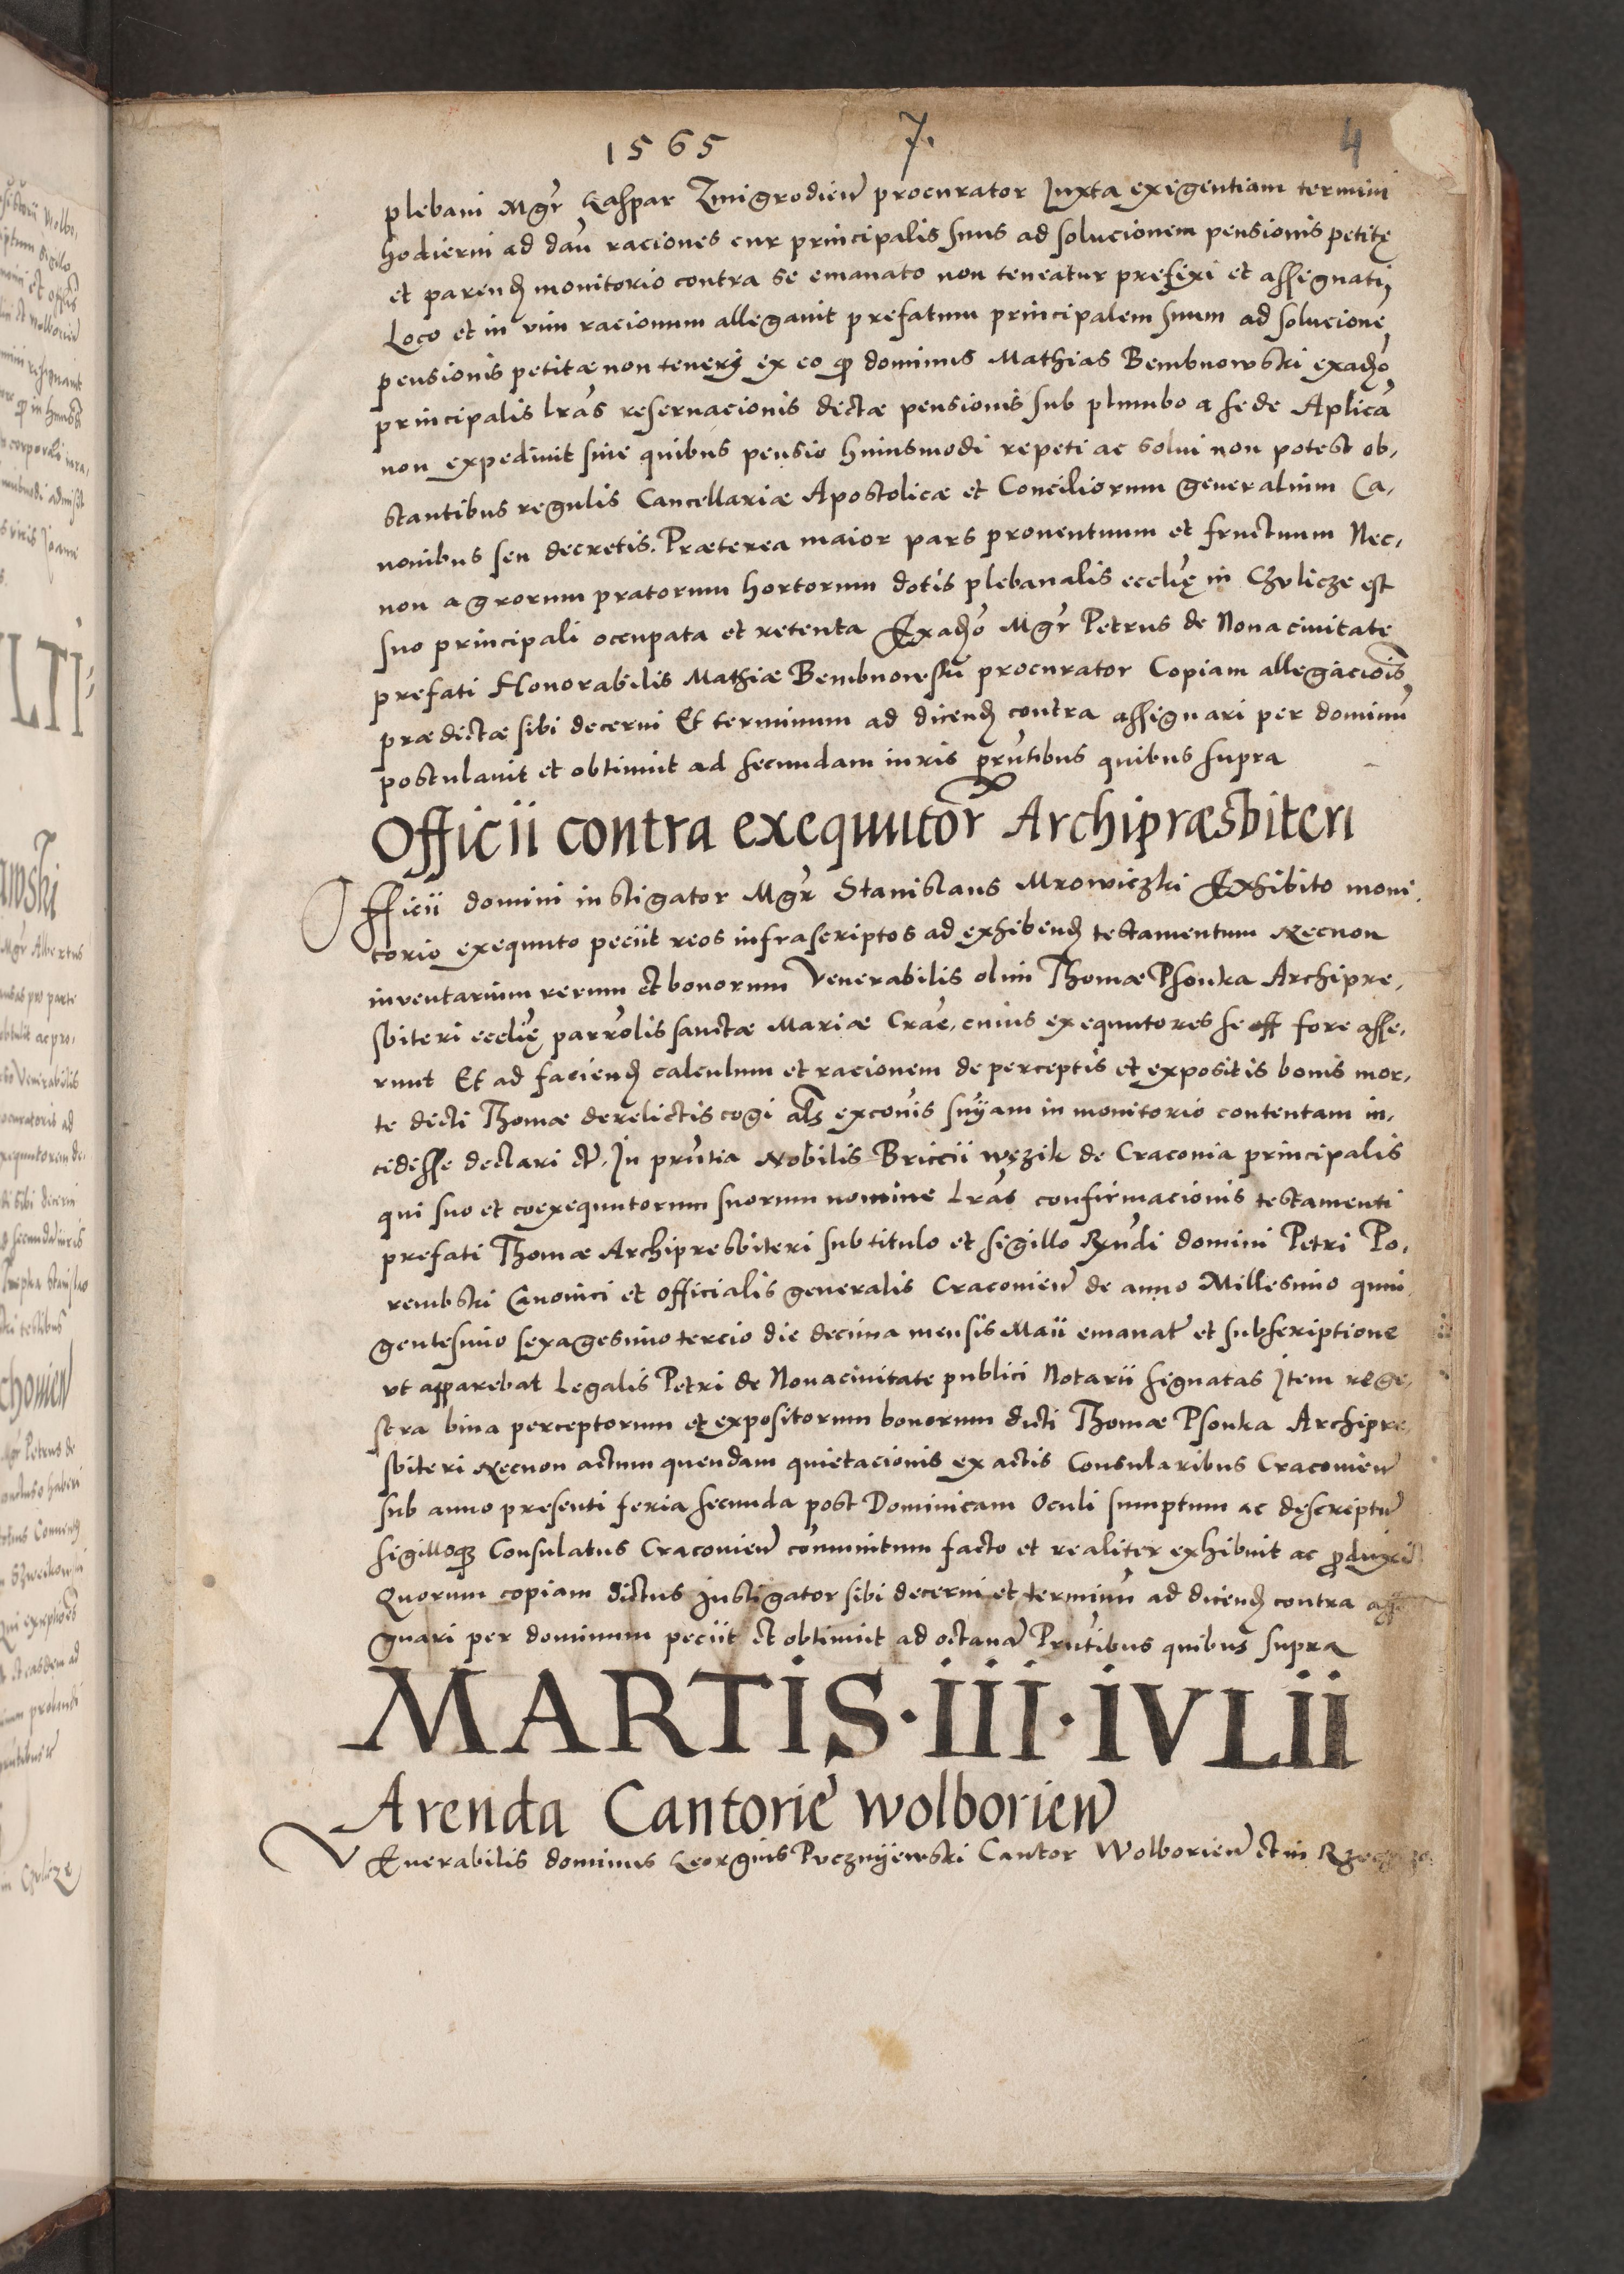 1565 7. 4
plebani Mgr̃ Kaspar Zmigrodieñ procurator Juxta exigentiam termini
hodierni ad dañ raciones cur principalis suus ad solucionem pensionis petitę
et parend monitorio contra se emanato non teneatur prefixi et assignati,
Loco et in vim racionum allegavit prefatum principalem suum ad solucione
pensionis petitæ non teneri ex eo qp dominus Mathias Bembnowski exadho
principalis lras reservacionis dictæ pensionis sub plumbo a sede Aplica
non expedivit sine quibus pensio huiusmodi repeti ac solui non potest ob,
stantibus regulis Cancellariæ Apostolicæ et Conciliorum generalium Ca,
nonibus seu decretis. Præterea maior pars proventuum et fructuum Nec,
non agrorum pratorum hortorum dotis plebanalis ecclię in Chvlicze est
suo principali occupata et retenta Exadho Mgr̃ Petrus de Nova civitate
prefati Honorabilis Mathiæ Bembnowski procurator Copiam allegaciois
prædictæ sibi decerni Et terminum ad dicend contra assignari per dominũ
postulavit et obtinuit ad secundam iuris prñtibus quibus supra
Officii contra exequutor Archipræsbiteri
Officii domini instigator Mgr̃ Stanislaus Mrowiczki Exhibito moni,
torio exequuto peciit reos infrascriptos ad exhibend testamentum Necnon
inventarium rerum et bonorum Venerabilis olim Thomæ Psonka Archipre,
sbiteri ecclię parrolis sanctæ Mariæ Crac, cuius exequutores se eff fore asse,
runt Et ad faciend calculum et racionem de perceptis et expositis bonis mor,
te dicti Thomæ derelictis cogi als excois snyam in monitorio contentam in,
cidesse declari etc. In prñtia Nobilis Briccii Węzik de Cracovia principalis
qui suo et coexequutorum suorum nomine lras confirmacionis testamenti
prefati Thomæ Archipresbiteri sub titulo et sigillo Rndi domini Petri Po,
rembski Canonici et officialis generalis Cracovieñ de anno Millesimo quin
gentesimo sexagesimo tercio die decima mensis Maii emanat et subscriptione
vt apparebat Legalis Petri de Nova civitate publici Notarii signatas Item rege,
stra bina perceptorum et expositorum bonorum dicti Thomæ Psonka Archipre
sbiteri Necnon actum quendam quietacionis ex actis Consularibus Cracovieñ
sub anno presenti feria secunda post Dominicam Oculi sumptum ac descriptũ
sigilloq3 Consulatus Cracovieñ communitum facto et realiter exhibuit ac produxit
Quorum copiam dictus Instigator sibi decerni et terminũ ad dicend contra assi
gnari per dominum peciit et obtinuit ad octavã Prñtibus quibus supra
MARTIS·III·IVLII
Arenda Cantorie Wolborieñ
VEnerabilis dominus Georgius Puczniewski Cantor Wolborieñ et in